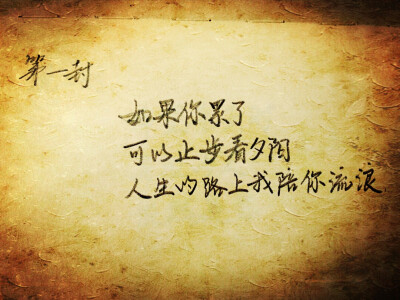 第一封
如果你累了
可以止步看夕阳
人生的路上我陪你流浪